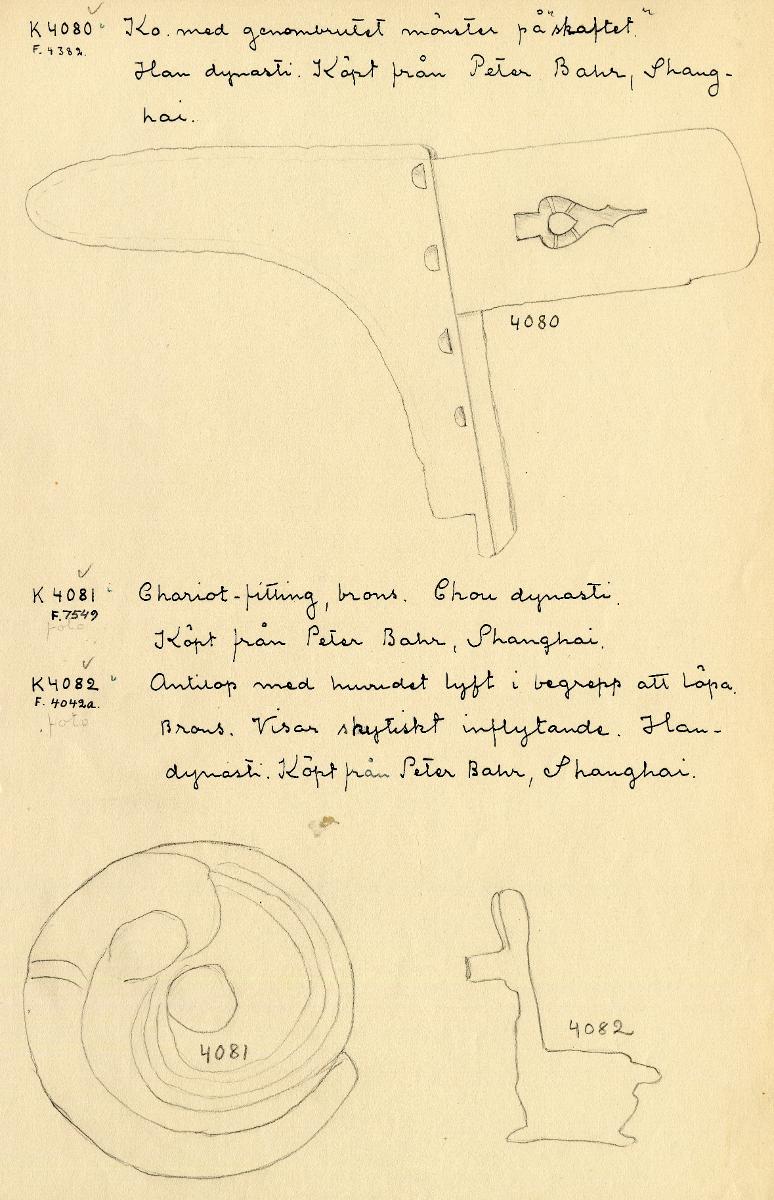 K 4080 Ko. med genombrutet mönster på "skaftet."
F. 4382.
Han dynasti. Köpt från Peter Bahr, Shang-
hai.
4080
K 4081 Chariot-fitting, brons. Chou dynasti.
F. 7549
foto
Köpt från Peter Bahr, Shanghai.
K 4082 Antilop med huvudet lyft i begrepp att löpa.
F. 4042a.
foto
Brons. Visar skytiskt inflytande. Han-
dynasti. Köpt från Peter Bahr, Shanghai.
4081
4082